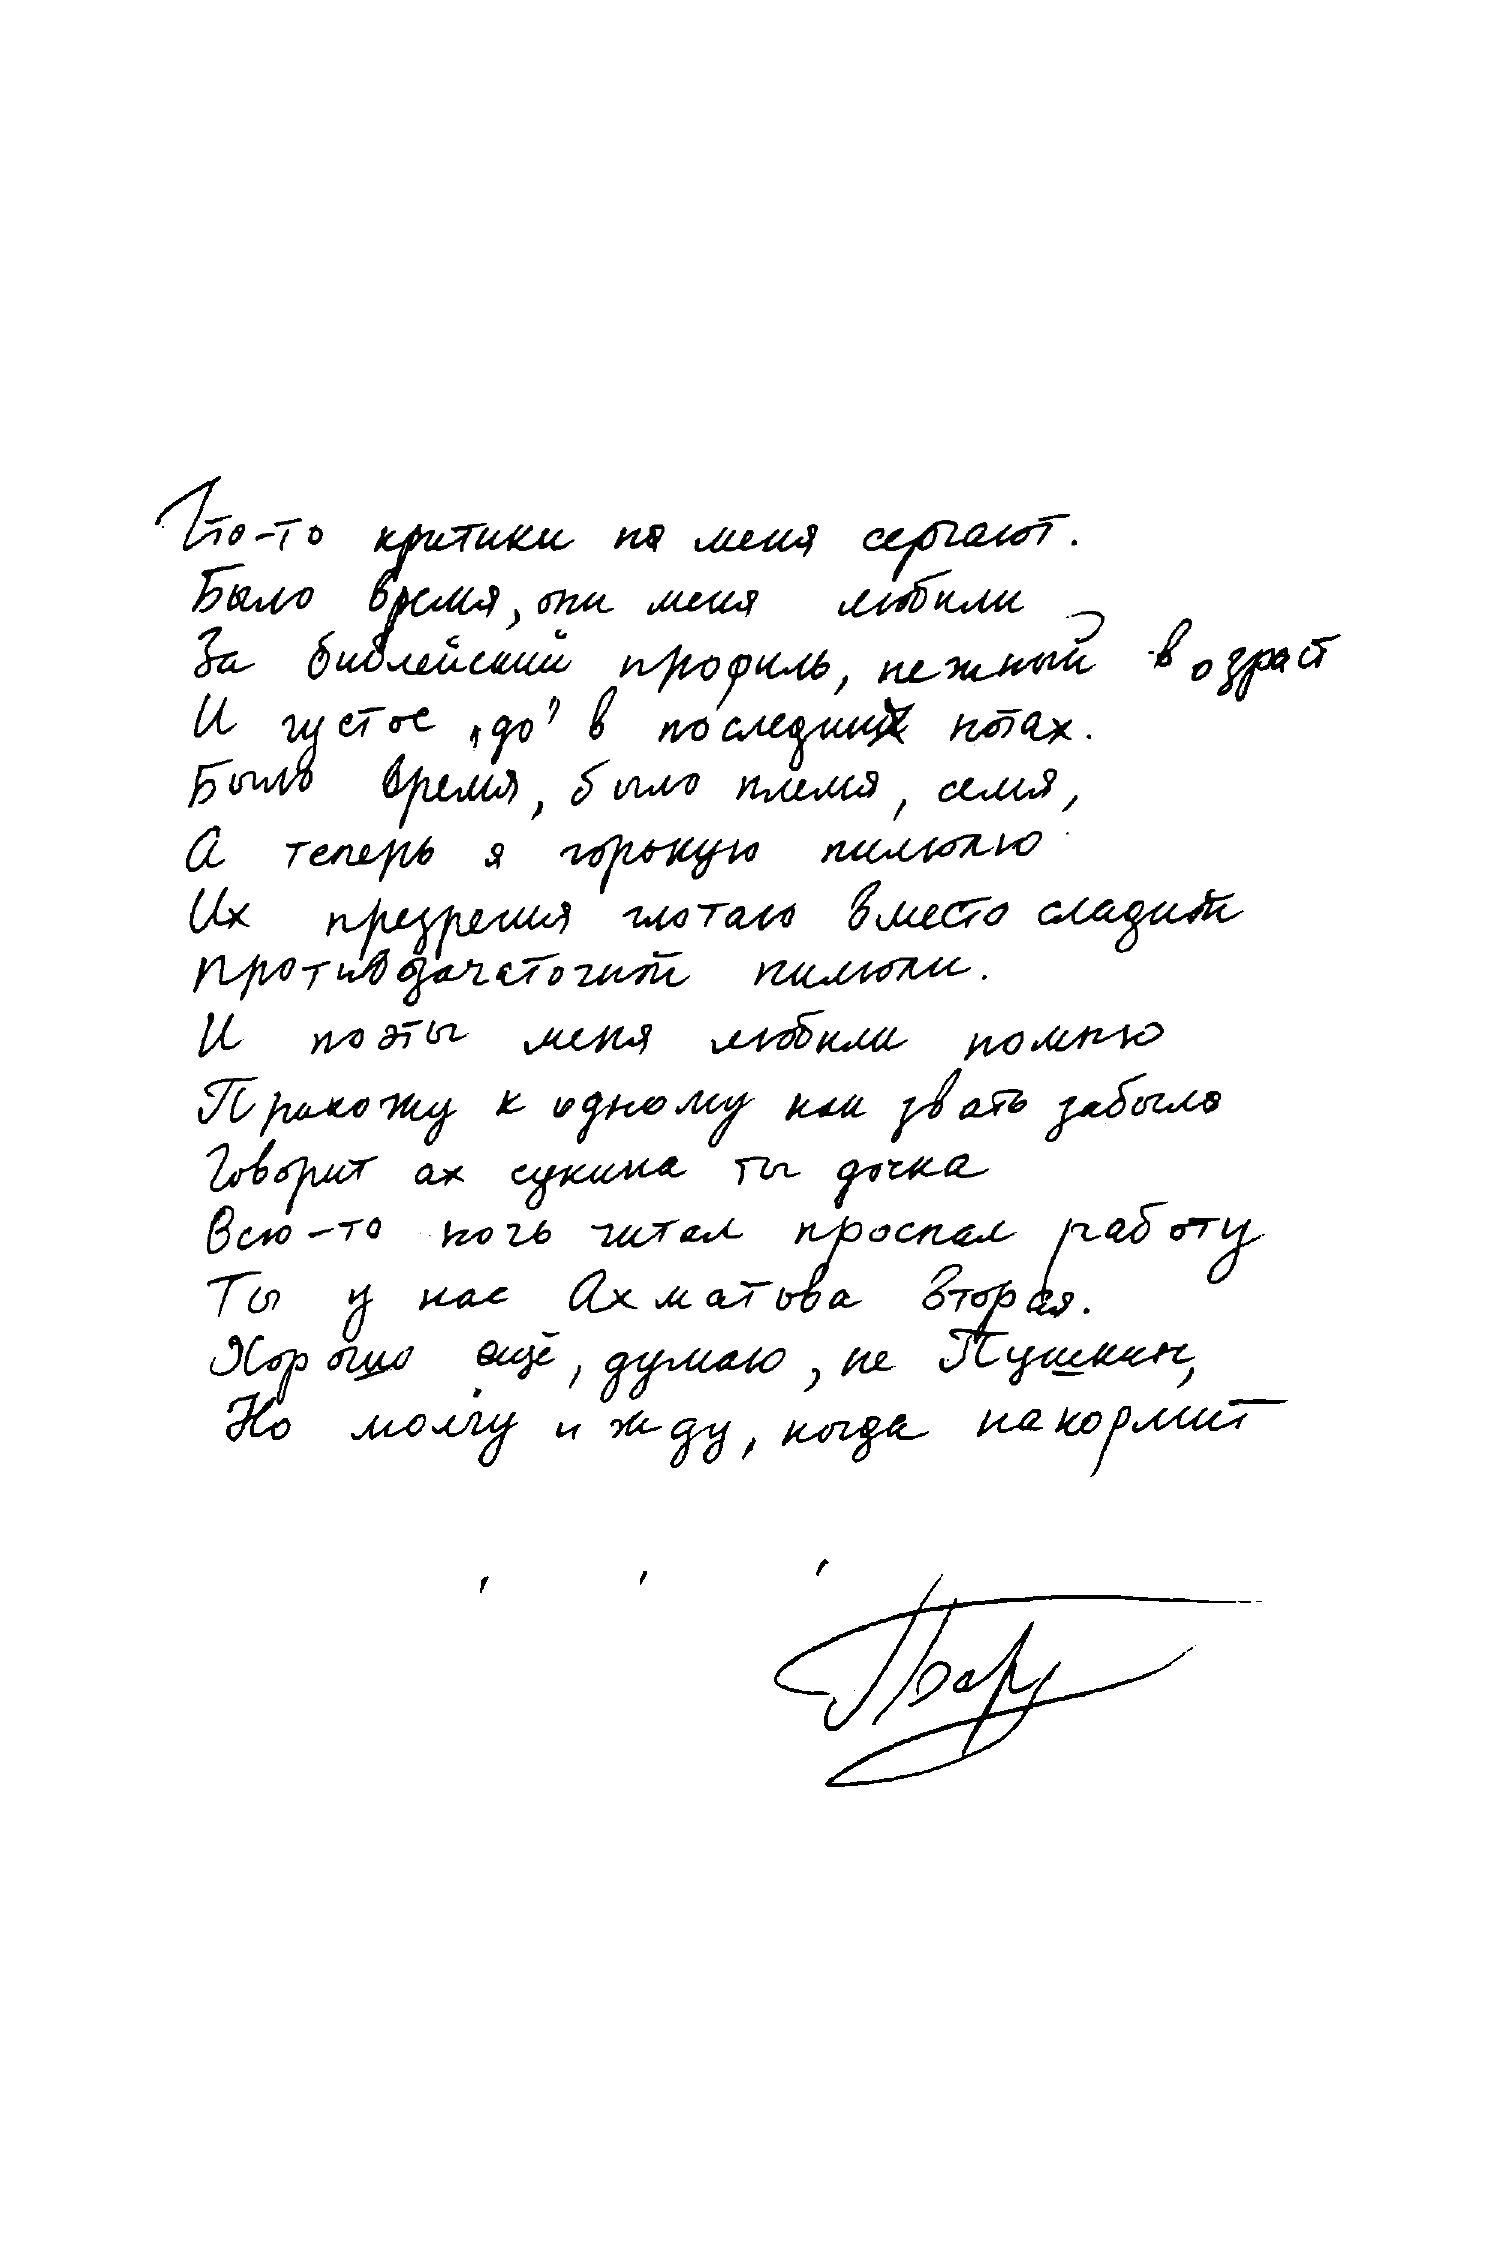 Что-то критики на меня серчают.
Было время, они меня любили
За библейский профиль, нежный возраст
И густое „до” в последних нотах.
Было время, было племя, семя,
А теперь я горькую пилюлю
Их презрения глотаю вместо сладкой
противозачаточной пилюли.
И поэты меня любили помню
Прихожу к одному как звать забыла
Говорит ах сукина ты дочка
Всю-то ночь читал проспал работу
Ты у нас Ахматова Вторая.
Хорошо ещё, думаю, не Пушкин,
Но молчу и жду, когда накормит